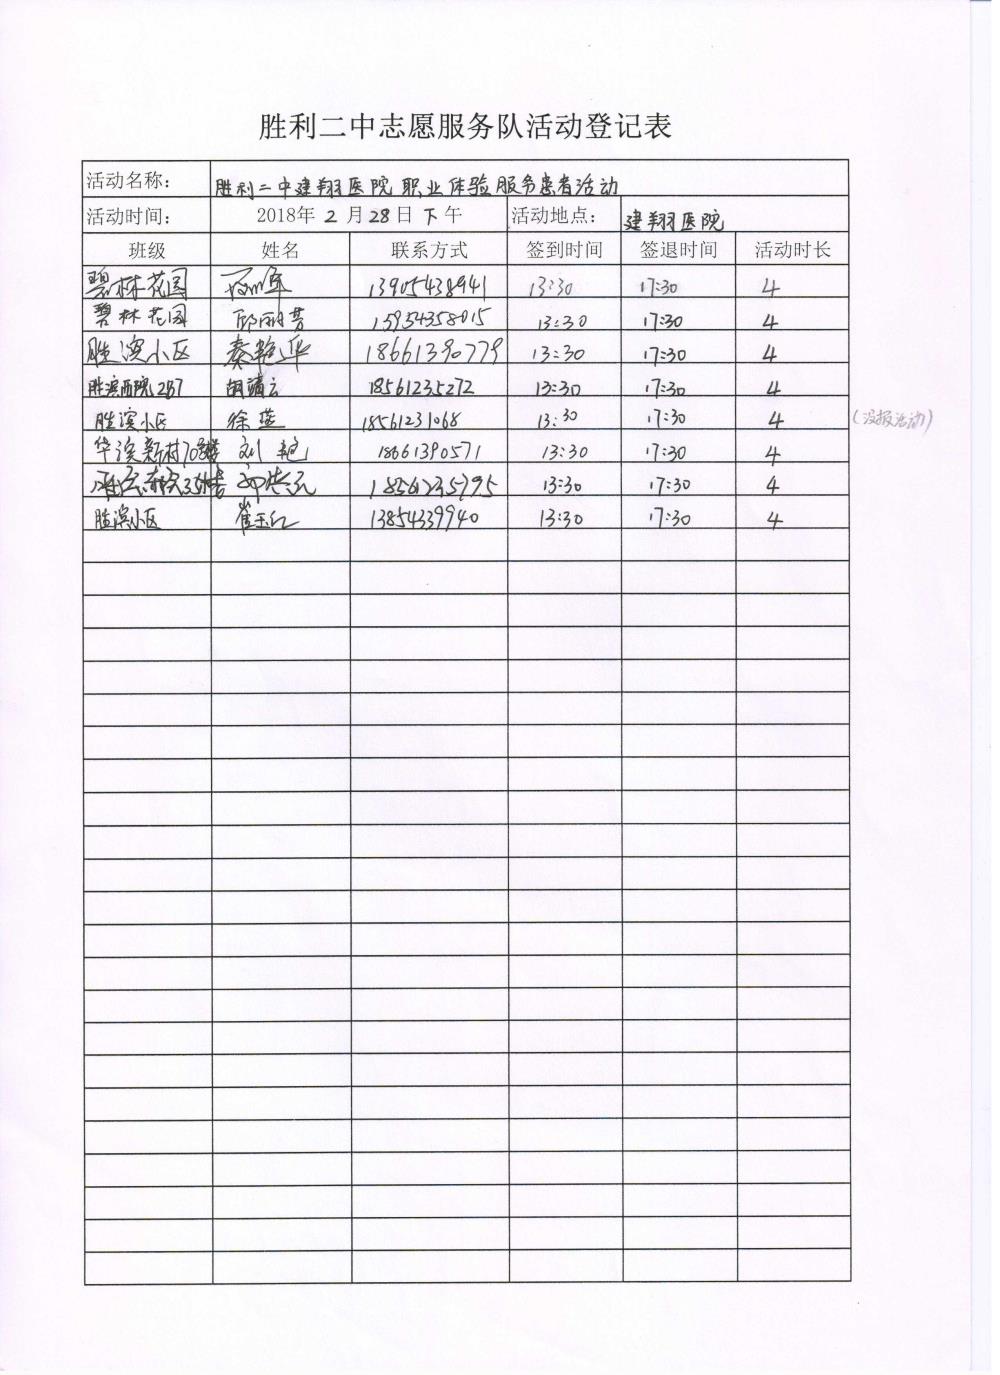 胜利二中志愿服务队活动登记表
活动名称： 胜利二中建翔医院职业体验服务患者活动
活动时间： 2018年 2 月 28 日 下 午 活动地点： 建翔医院
班级 姓名 联系方式 签到时间 签退时间 活动时长
碧林花园 13905438941 13:30 17:30 4
碧林花园 邱丽芳 15954358015 13:30 17:30 4
胜滨小区 秦艳华 18661390779 13:30 17:30 4
胜滨西院287 胡靖云 18561235272 13:30 17:30 4
胜滨小区 徐莲 18561231068 13:30 17:30 4 （没报活动）
华滨新村70号楼 刘艳 18661390571 13:30 17:30 4
18561235795 13:30 17:30 4
胜滨小区 崔玉红 13854339940 13:30 17:30 4